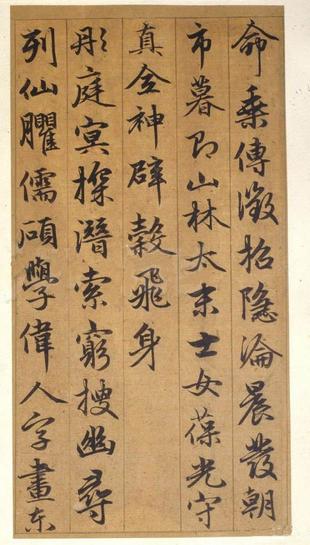 命乘傳徵招隱淪晨發朝
市暮即山林太末士女葆光守
真全神辟穀飛身
彤庭冥探潛索窮搜幽尋
列仙臞儒碩學偉人字畫東